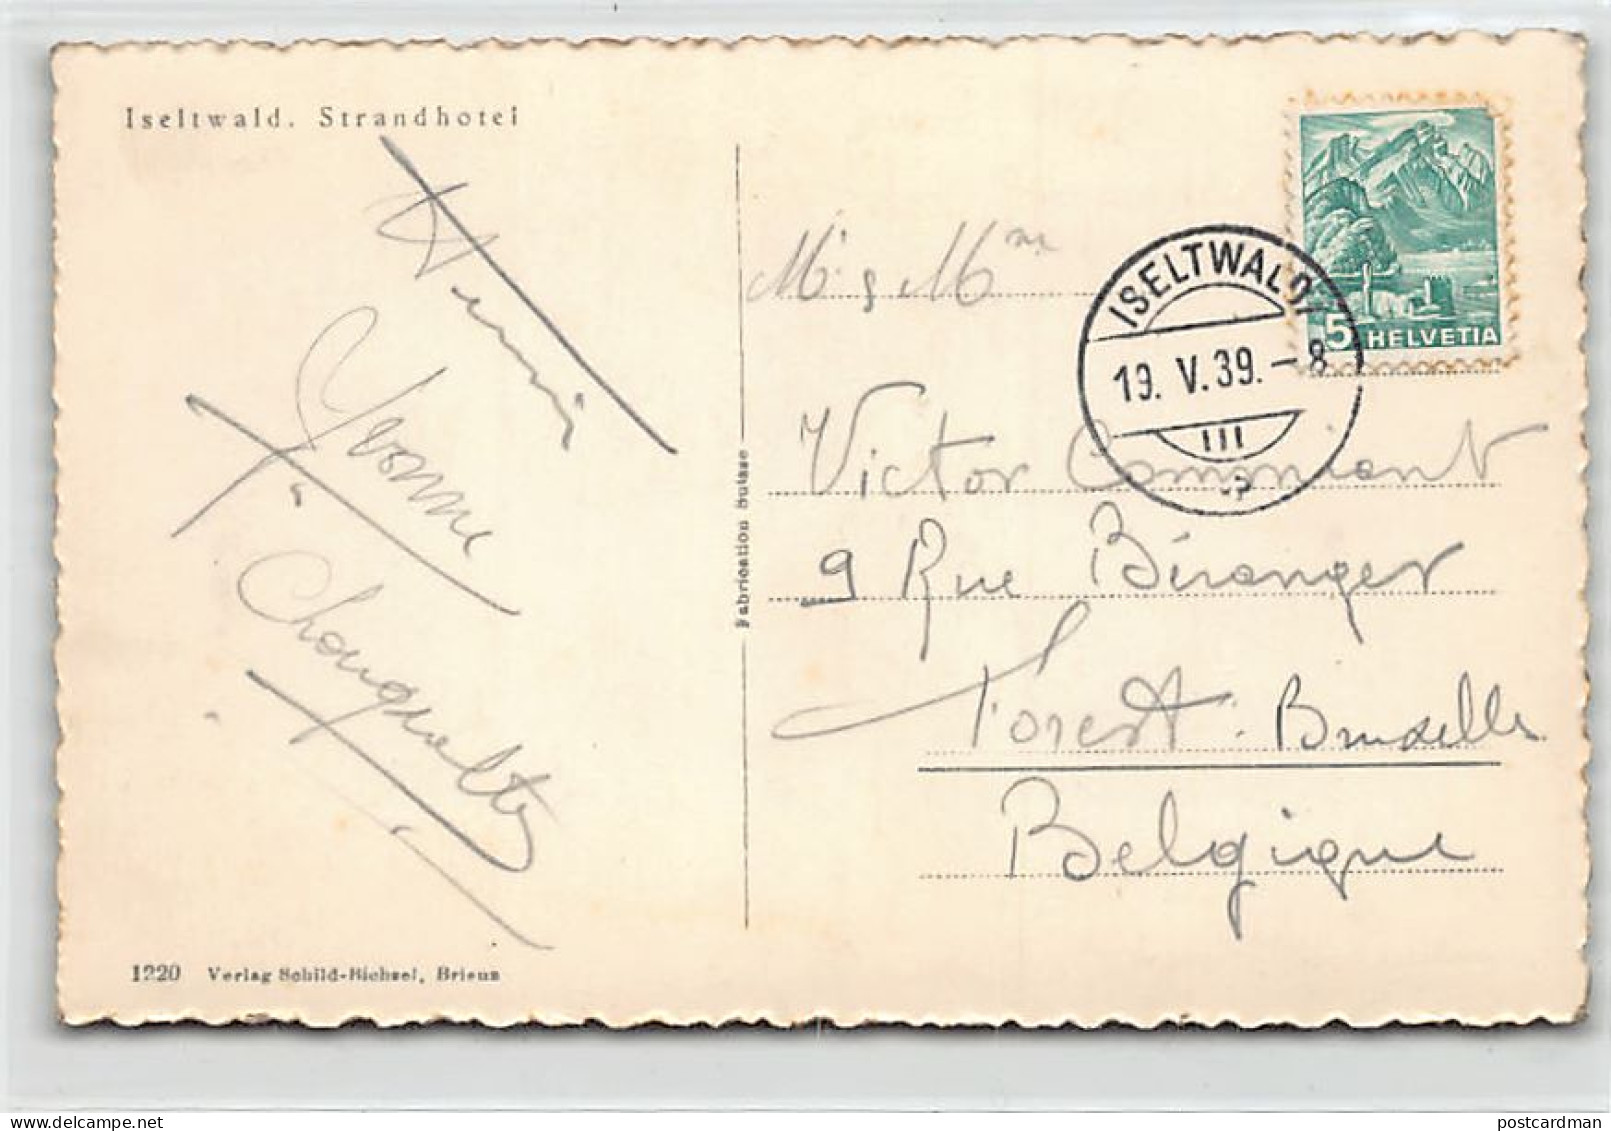 Iseltwald. Strandhotel
Henri
Yvonne
M. & Mme
ISELTWALD
19. V. 39. - 8
5 HELVETIA
Victor
9 Rue Béranger
Forest. Bruxelles
Belgique
Fabrication Suisse
1220 Verlag Schild-Bichsel, Brienz
postcardman